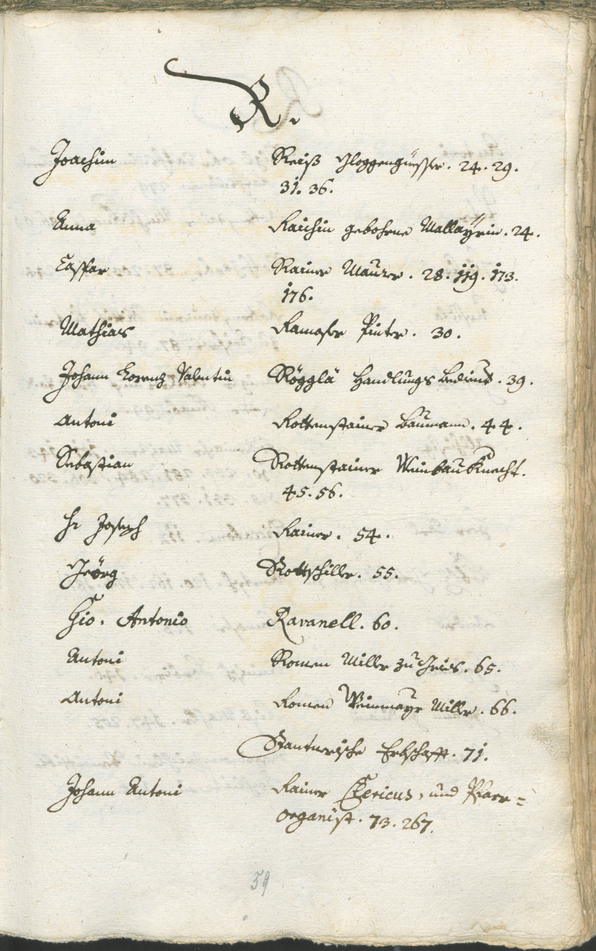 R.
Joachim Reiß Gloggengüsser. 24. 29.
31. 36.
Anna Raichin gebohrne Mallayrin. 24.
Casspar Rainer Maurer. 28. 119. 173.
176.
Mathias Ramoser Pinter. 30.
Johann Lorenz Valentin Rögglä Handlungs bedient. 39.
Antoni Rottenstainer baumann. 44.
Sebastian Rottenstainer Weinbau Knecht.
45. 56.
Hr Joseph Rainer. 54.
Jeörg 55.
Gio. Antonio Ravanell. 60.
Antoni Romen Miller zu Gries. 65.
Antoni Romen Miller. 66.
Erbschafft. 71.
Johann Antoni Rainer Clericus, und Pfarr=
organist. 73. 267.
59